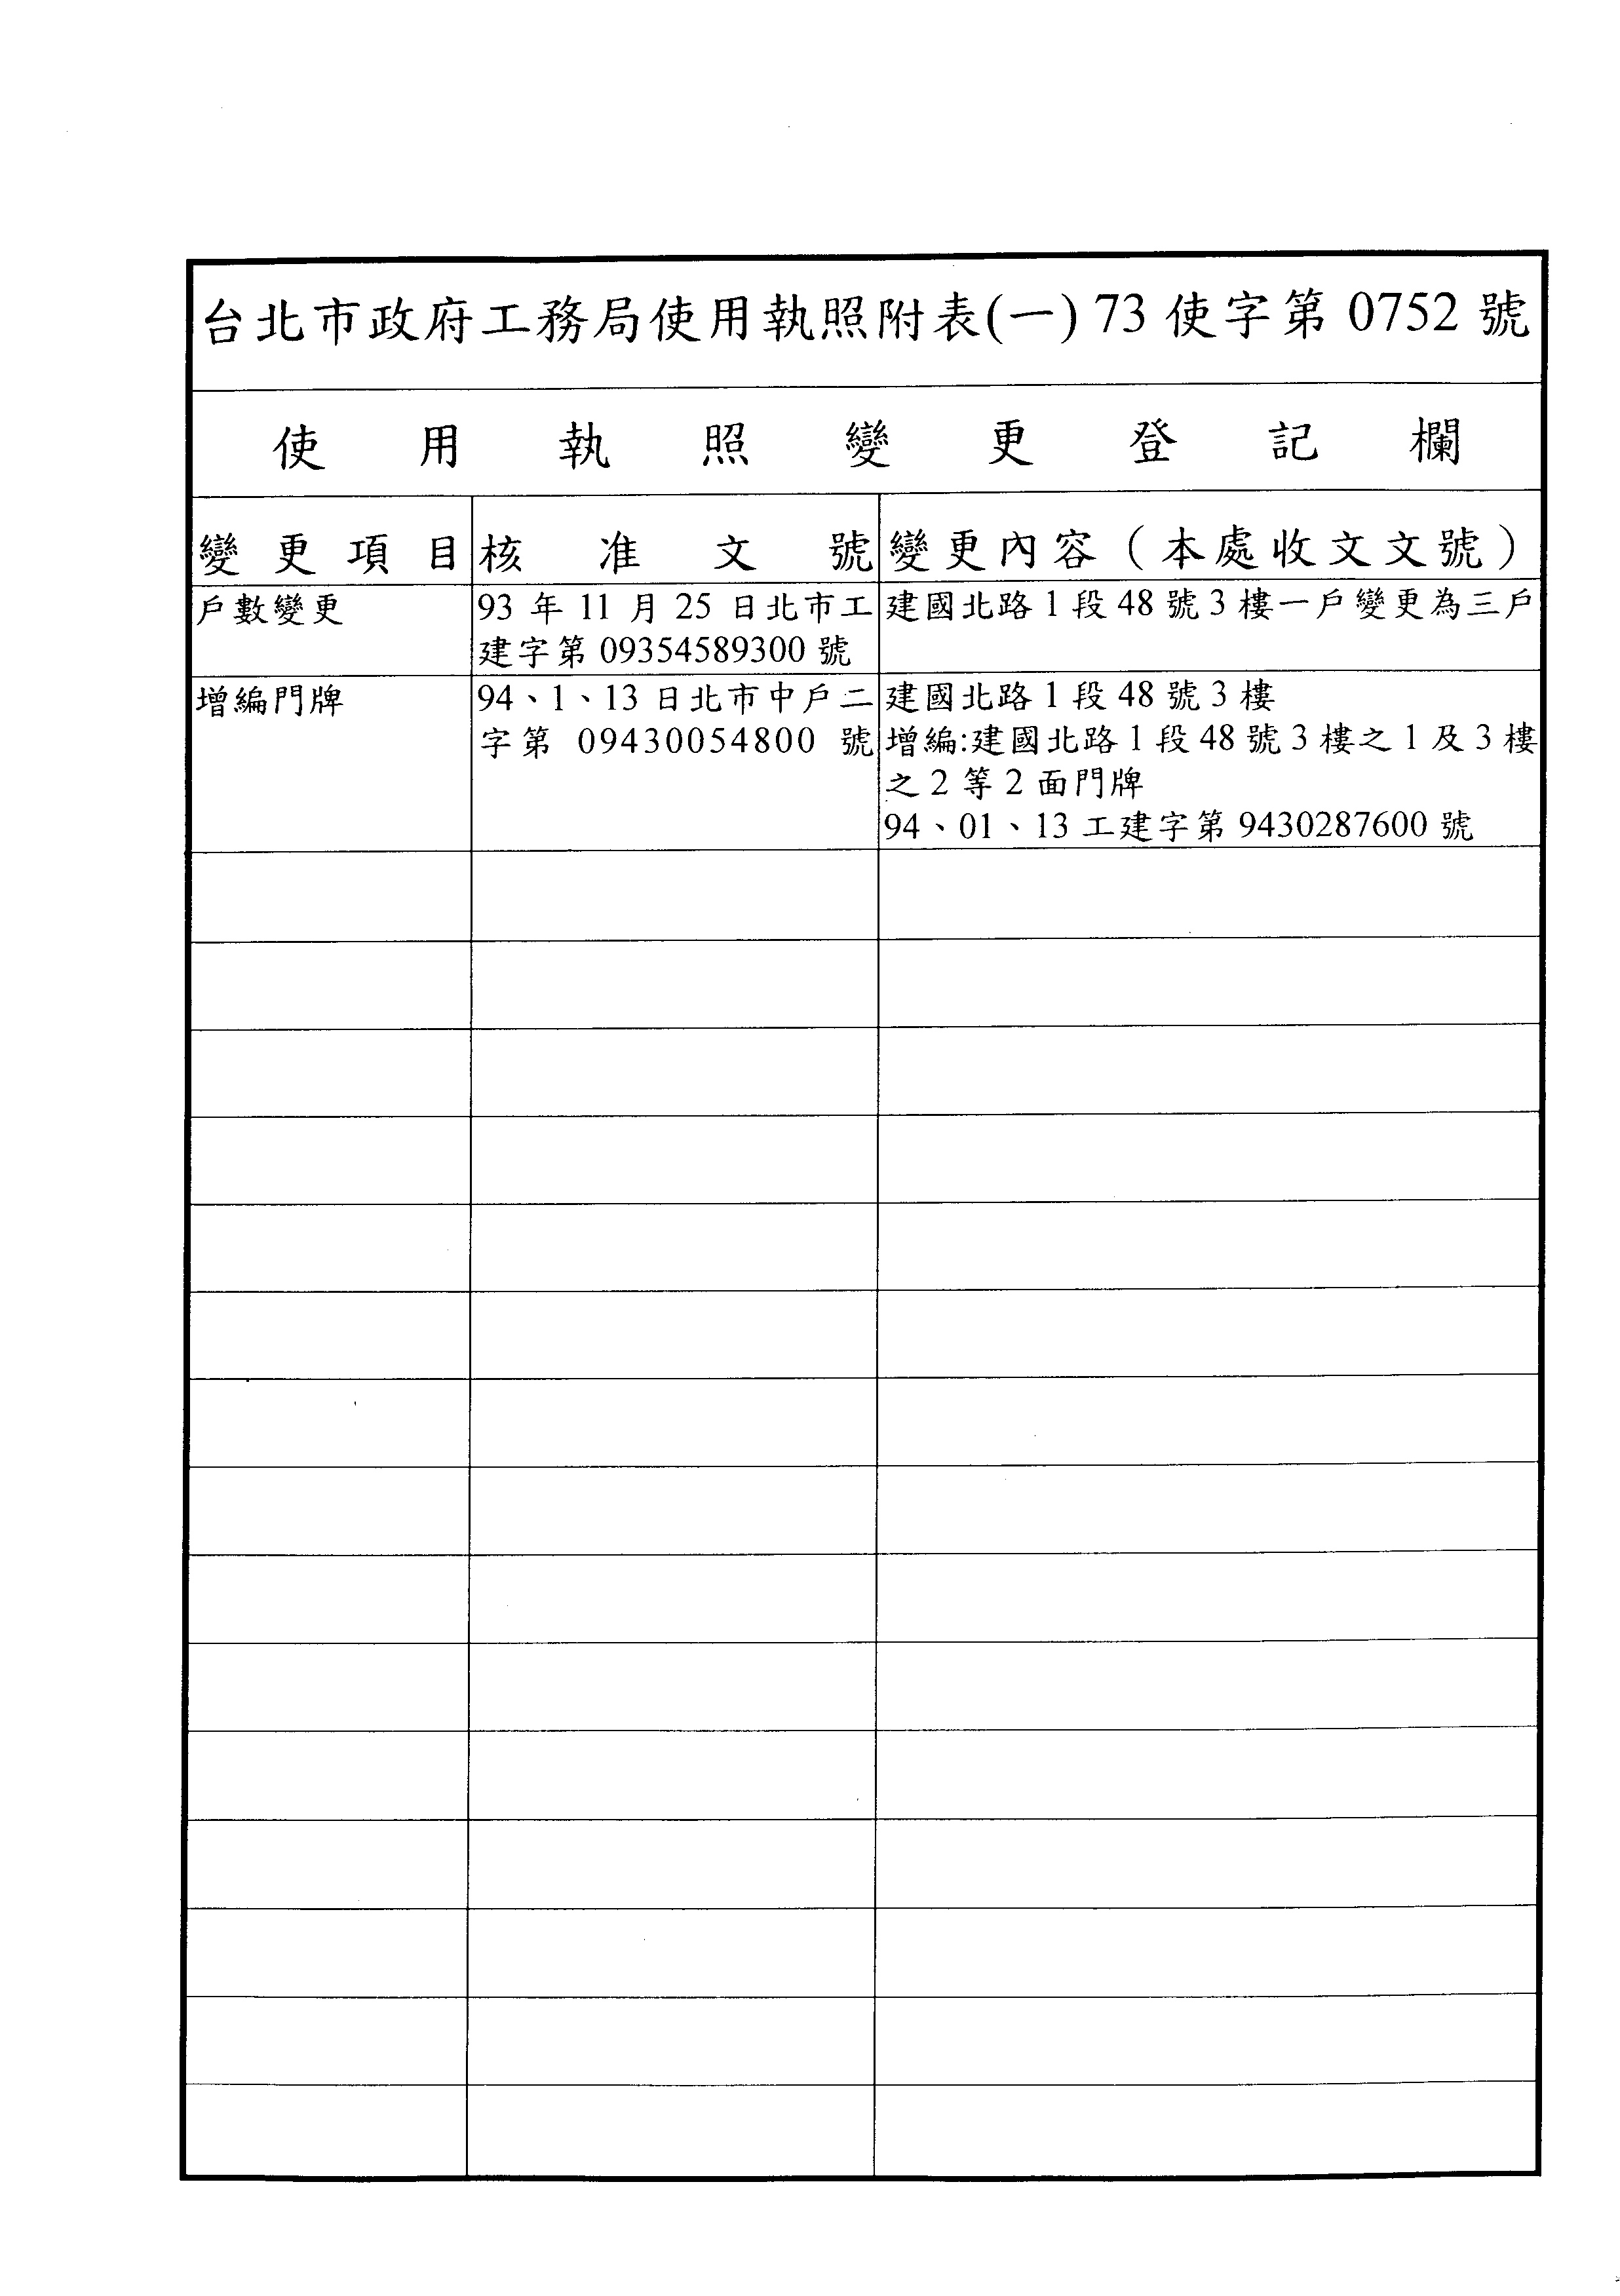 台北市政府工務局使用執照附表(一) 73 使字第 0752 號
使用執照變更登記欄
變更項目 核准文號 變更內容（本處收文文號）
戶數變更 93 年 11 月 25 日北市工 建國北路 1 段 48 號 3 樓一戶變更為三戶
建字第 09354589300 號
增編門牌 94、1、13 日北市中戶二 建國北路 1 段 48 號 3 樓
字第 09430054800 號 增編:建國北路 1 段 48 號 3 樓之 1 及 3 樓
之 2 等 2 面門牌
94、01、13 工建字第 9430287600 號